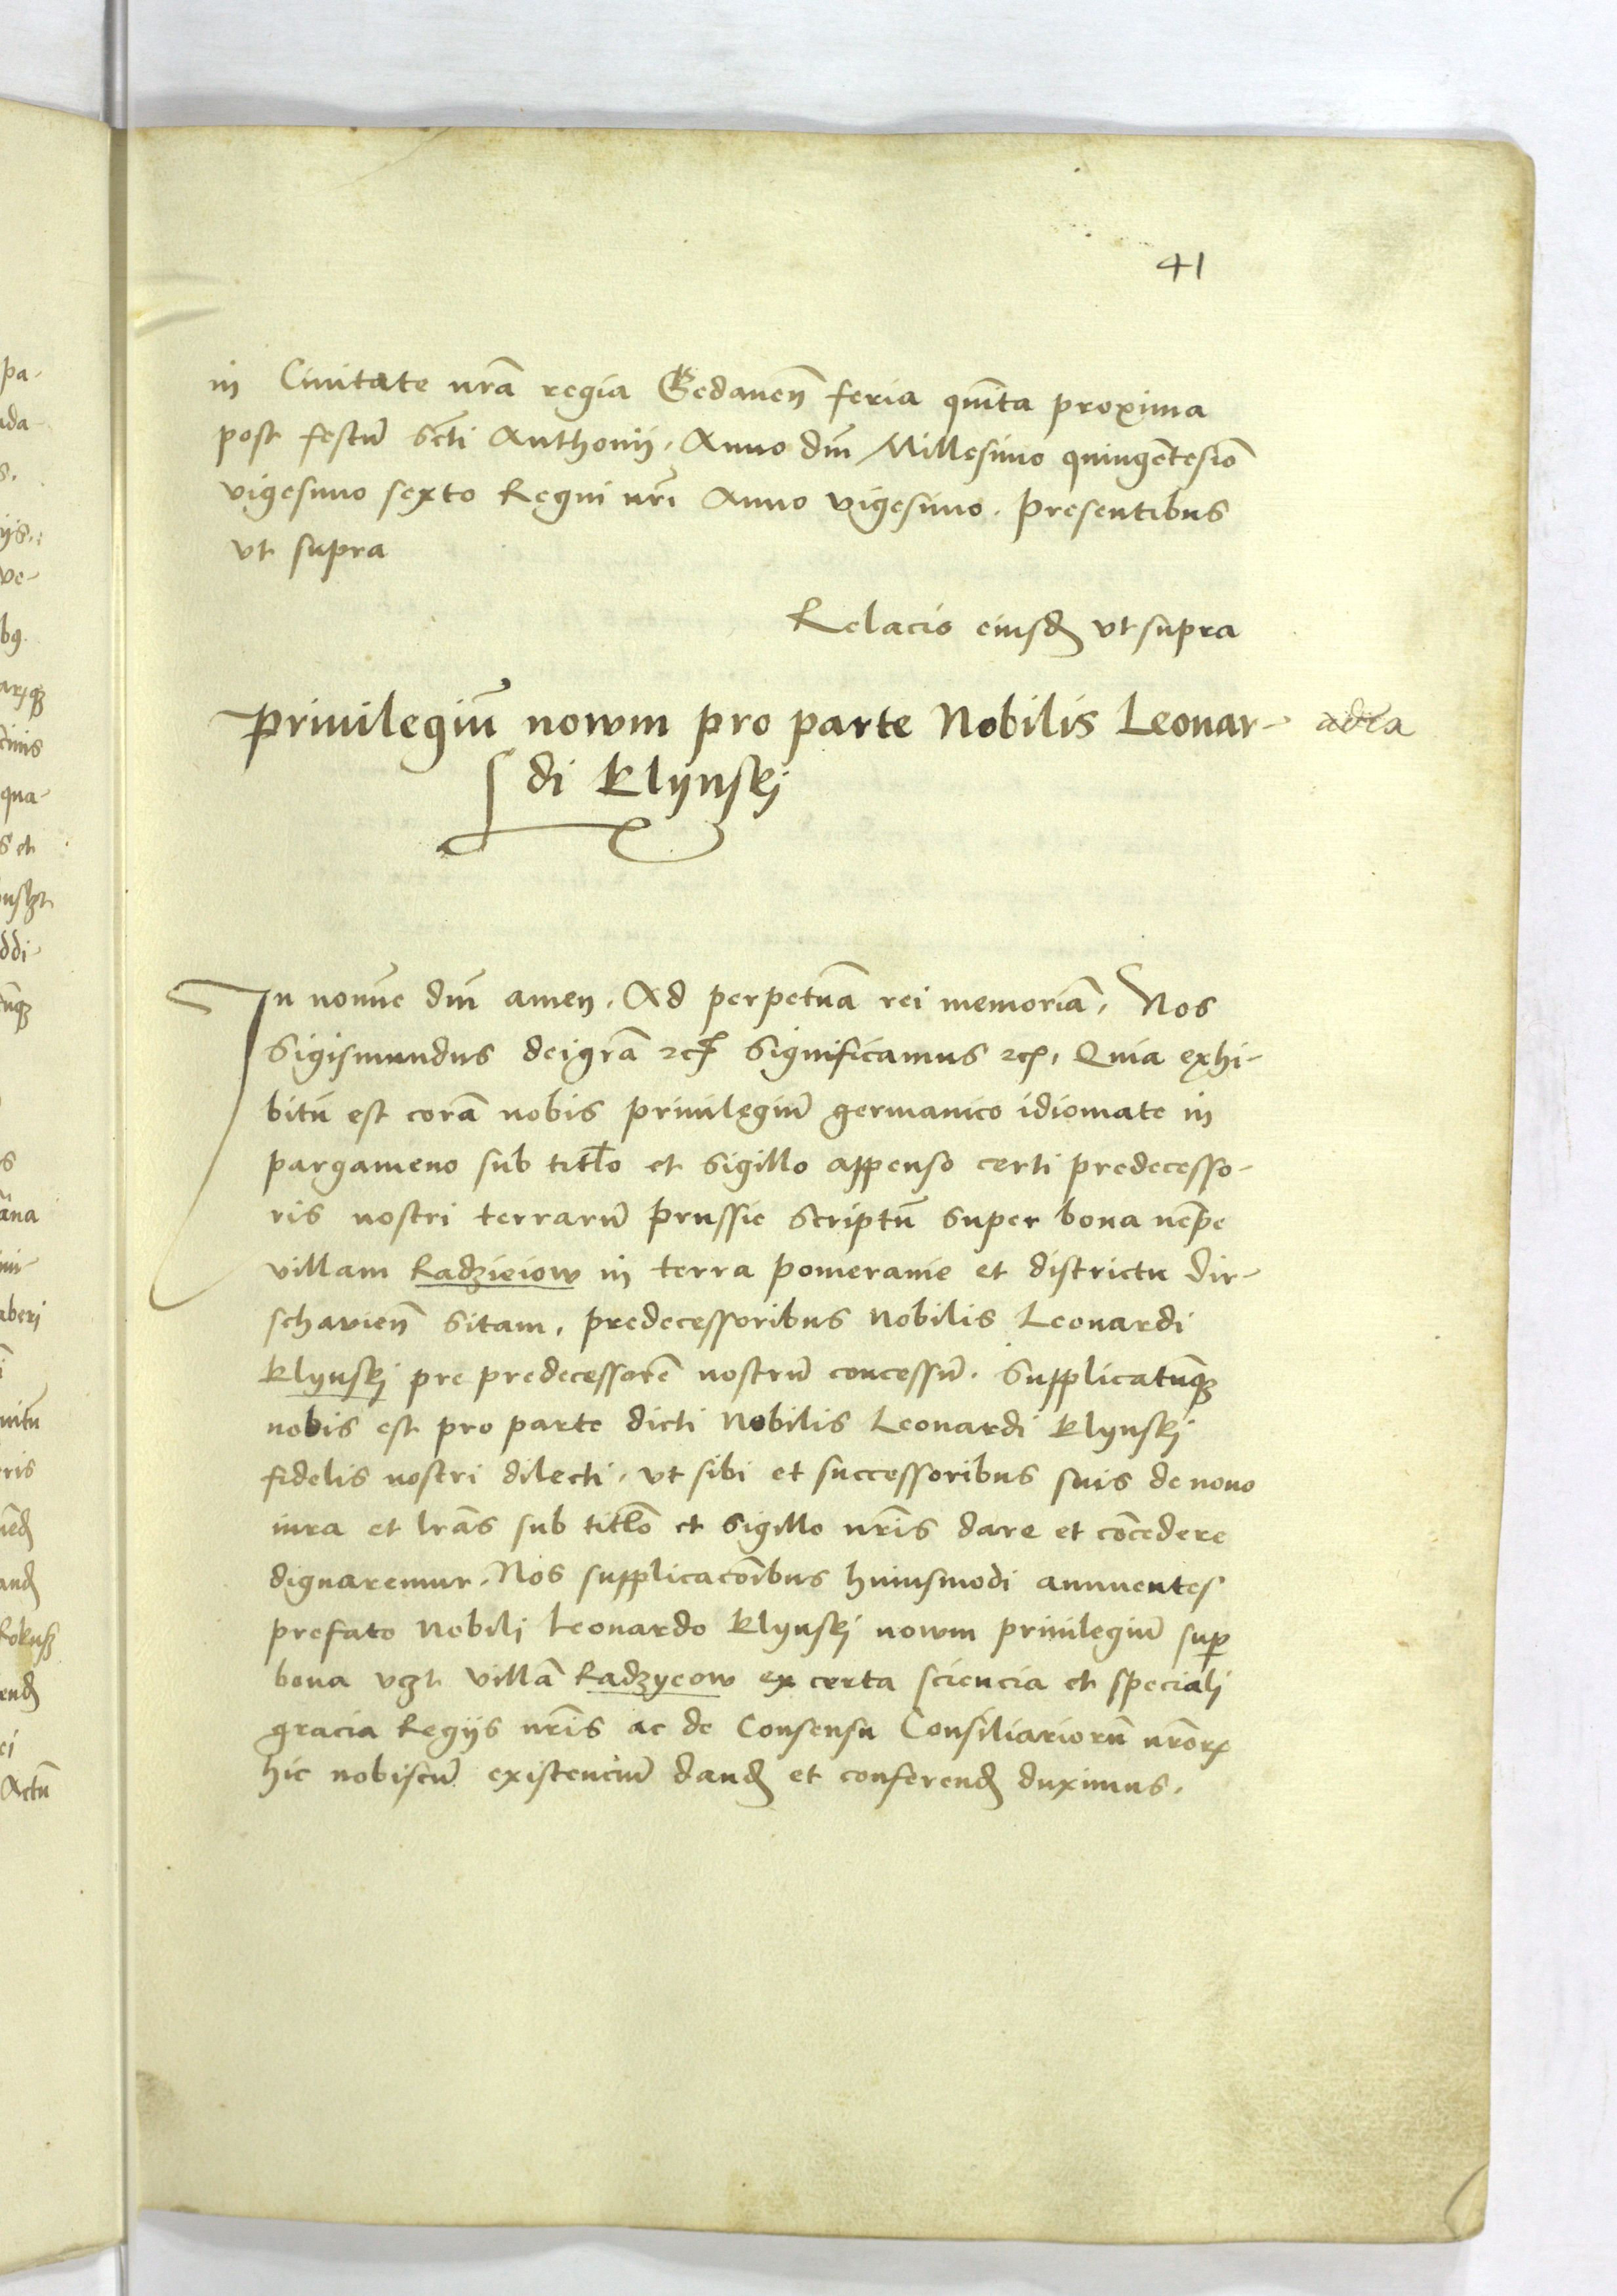 41
in Ciuitate nrã regia Gedaueñ feria quĩta proxima
post festũ Scti Anthonij. Anno dni Millesimo quingẽtesiõ
vigesimo sexto Regni nri Anno vigesimo. Presentibus
vt supra
Relacio eiusd vt supra
Priuilegiũ nowm pro parte Nobilis Leonar-
di Klynskj
In noĩe dni amen. Ad perpetuã rei memoriã. Nos
Sigismundus dei grã etc Significamus etc. Quia exhi-
bitũ est corã nobis priuilegiũ germanico idiomate in
pargameno sub titlo et sigillo appenso certi predecesso-
ris nostri terrarũ Prussie Scriptũ super bona nẽpe
villam Radzieiow in terra Pomeranie et districtu Dir-
schavieñ Sitam. predecessoribus Nobilis Leonardi
Klynskj pre predecessorẽ nostrũ concessũ. Supplicatũqꝫ
nobis est pro parte dicti Nobilis Leonardi Klynskj
fidelis nostri dilecti. vt sibi et successoribus suis de nouo
iura et lrãs sub titlo et sigillo nris dare et cõcedere
dignaremur. Nos supplicacoĩbus huiusmodi annuentes
prefato Nobili Leonardo Klynskj nowm priuilegiũ suꝑ
bona vꝫt villã Radzyeow ex certa sciencia et specialj
gracia Regijs nris ac de Consensu Consiliariorũ nrõrꝫ
hic nobiscũ existenciũ dand et conferend duximus.